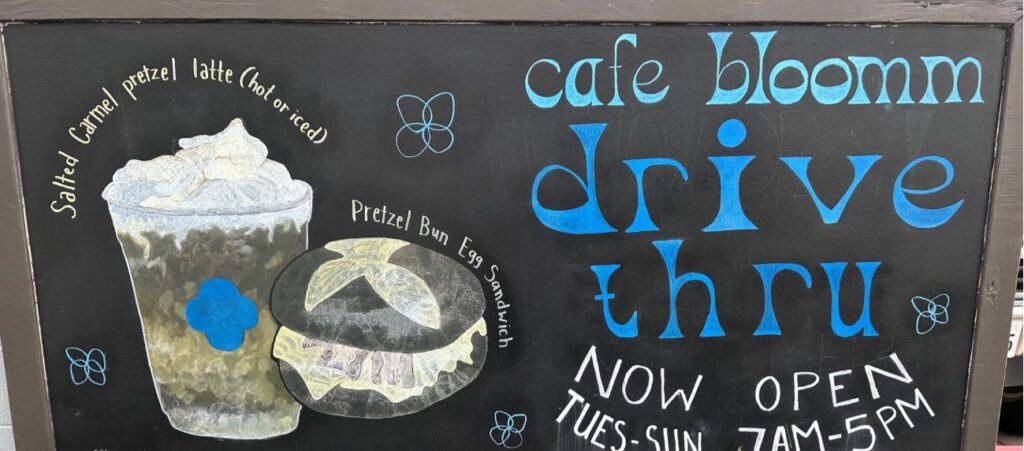 Salted Carmel pretzel latte (hot or iced)
Pretzel Bun Egg Sandwich
cafe bloomm
drive
thru
NOW OPEN
TUES-SUN 7AM-5PM